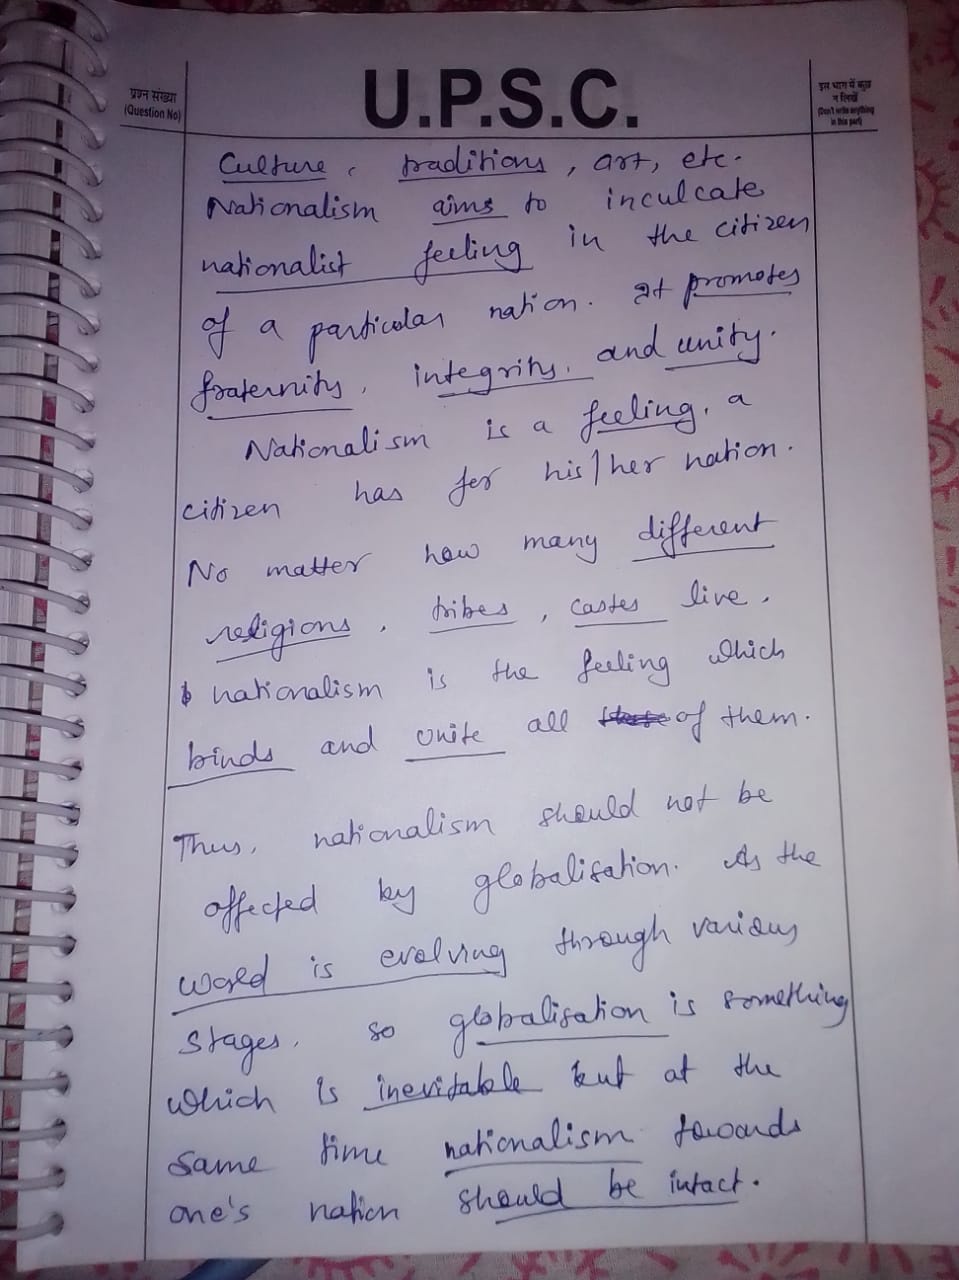 U.P.S.C.
प्रश्न संख्या
(Question No)
इस भाग में कुछ
न लिखें
(Don't write anything
in this part)
Culture, traditions, art, etc.
Nationalism aims to inculcate
nationalist feeling in the citizen
of a particular nation. It promotes
fraternity, integrity, and unity.
Nationalism is a feeling, a
citizen has for his/her nation.
No matter how many different
religions, tribes, castes live,
nationalism is the feeling which
binds and unite all of them.
Thus, nationalism should not be
affected by globalisation. As the
world is evolving through various
stages, so globalisation is something
which is inevitable but at the
same time nationalism towards
one's nation should be intact.